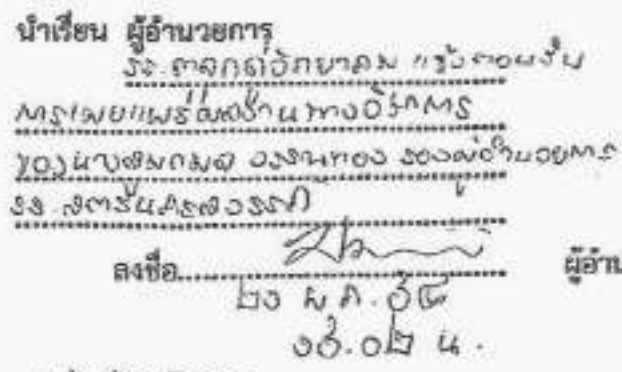 นำเรียน ผู้อำนวยการ
รร.ตาคลีวิทยาคม แจ้งตอบรับ
การเผยแพร่ผลงานทางวิชาการ
ของนาง วรรณทอง รองผู้อำนวยการ
รร.สตรีนครสวรรค์
ลงชื่อ ผู้อำน
๒๑ พ.ค. ๕๔
๑๕.๐๒ น.